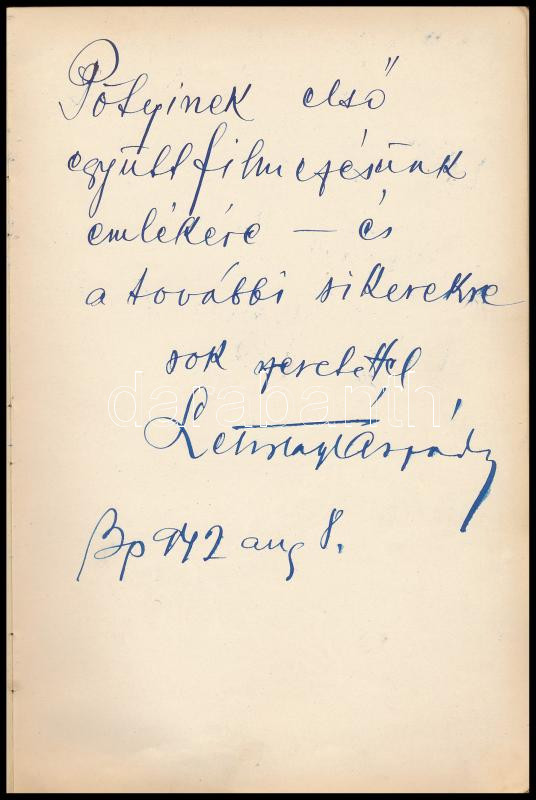 Pötyinek első
együtt filmezésünk
emlékére — és
a további sikerekre
sok szeretettel
darabanth
Lehotay Árpád
Bp 942 aug 8.